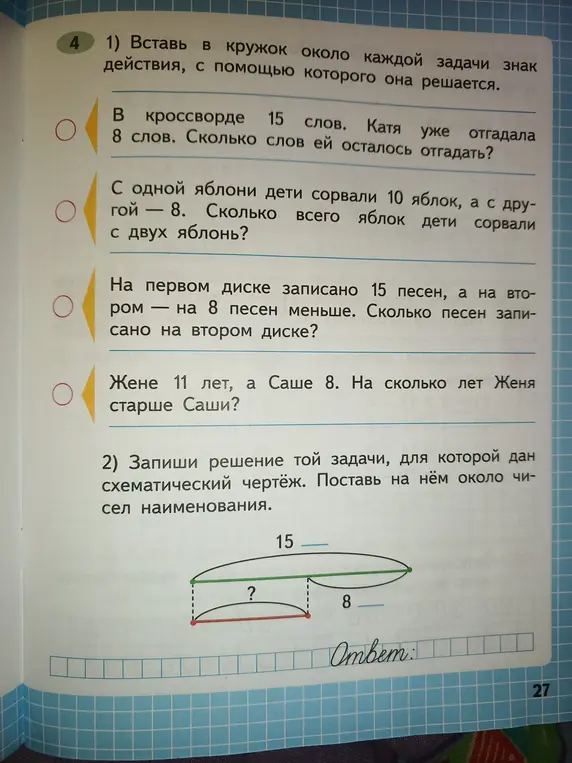 4 1) Вставь в кружок около каждой задачи знак
действия, с помощью которого она решается.
В кроссворде 15 слов. Катя уже отгадала
8 слов. Сколько слов ей осталось отгадать?
С одной яблони дети сорвали 10 яблок, а с дру-
гой — 8. Сколько всего яблок дети сорвали
с двух яблонь?
На первом диске записано 15 песен, а на вто-
ром — на 8 песен меньше. Сколько песен запи-
сано на втором диске?
Жене 11 лет, а Саше 8. На сколько лет Женя
старше Саши?
2) Запиши решение той задачи, для которой дан
схематический чертёж. Поставь на нём около чи-
сел наименования.
15
?
8
Ответ:
27